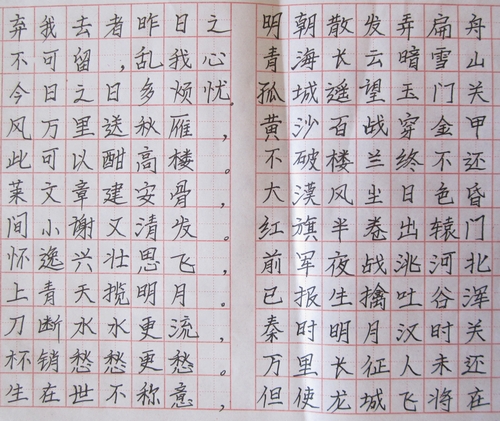 弃我去者昨日之
不可留，乱我心
今日之日多烦忧。
风万里送秋雁，
此可以酣高楼。
莱文章建安骨，
间小谢又清发。
怀逸兴壮思飞，
上青天揽明月。
刀断水水更流，
杯销愁愁更愁。
生在世不称意，
明朝散发弄扁舟
青海长云暗雪山
孤城遥望玉门关
黄沙百战穿金甲
不破楼兰终不还
大漠风尘日色昏
红旗半卷出辕门
前军夜战洮河北
已报生擒吐谷浑
秦时明月汉时关
万里长征人未还
但使龙城飞将在